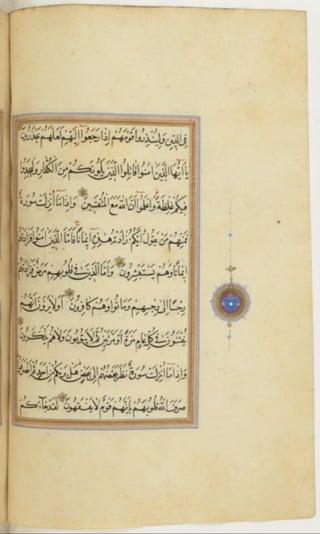 فِي الدِّينِ وَلِيُنْذِرُوا قَوْمَهُمْ إِذَا رَجَعُوا إِلَيْهِمْ لَعَلَّهُمْ يَحْذَرُونَ
يَا أَيُّهَا الَّذِينَ آمَنُوا قَاتِلُوا الَّذِينَ يَلُونَكُمْ مِنَ الْكُفَّارِ وَلْيَجِدُوا
فِيكُمْ غِلْظَةً وَاعْلَمُوا أَنَّ اللهَ مَعَ الْمُتَّقِينَ وَإِذَا مَا أُنْزِلَتْ سُورَةٌ
فَمِنْهُمْ مَنْ يَقُولُ أَيُّكُمْ زَادَتْهُ هَذِهِ إِيمَانًا فَأَمَّا الَّذِينَ آمَنُوا فَزَادَتْهُمْ
إِيمَانًا وَهُمْ يَسْتَبْشِرُونَ وَأَمَّا الَّذِينَ فِي قُلُوبِهِمْ مَرَضٌ فَزَادَتْهُمْ
رِجْسًا إِلَى رِجْسِهِمْ وَمَاتُوا وَهُمْ كَافِرُونَ أَوَلَا يَرَوْنَ أَنَّهُمْ
يُفْتَنُونَ فِي كُلِّ عَامٍ مَرَّةً أَوْ مَرَّتَيْنِ ثُمَّ لَا يَتُوبُونَ وَلَا هُمْ يَذَّكَّرُونَ
وَإِذَا مَا أُنْزِلَتْ سُورَةٌ نَظَرَ بَعْضُهُمْ إِلَى بَعْضٍ هَلْ يَرَاكُمْ مِنْ أَحَدٍ ثُمَّ انْصَرَفُوا
صَرَفَ اللهُ قُلُوبَهُمْ بِأَنَّهُمْ قَوْمٌ لَا يَفْقَهُونَ لَقَدْ جَاءَكُمْ